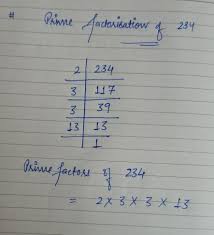 # Prime factorisation of 234
2 | 234
3 | 117
3 | 39
13 | 13
1
Prime factors of 234
= 2 × 3 × 3 × 13